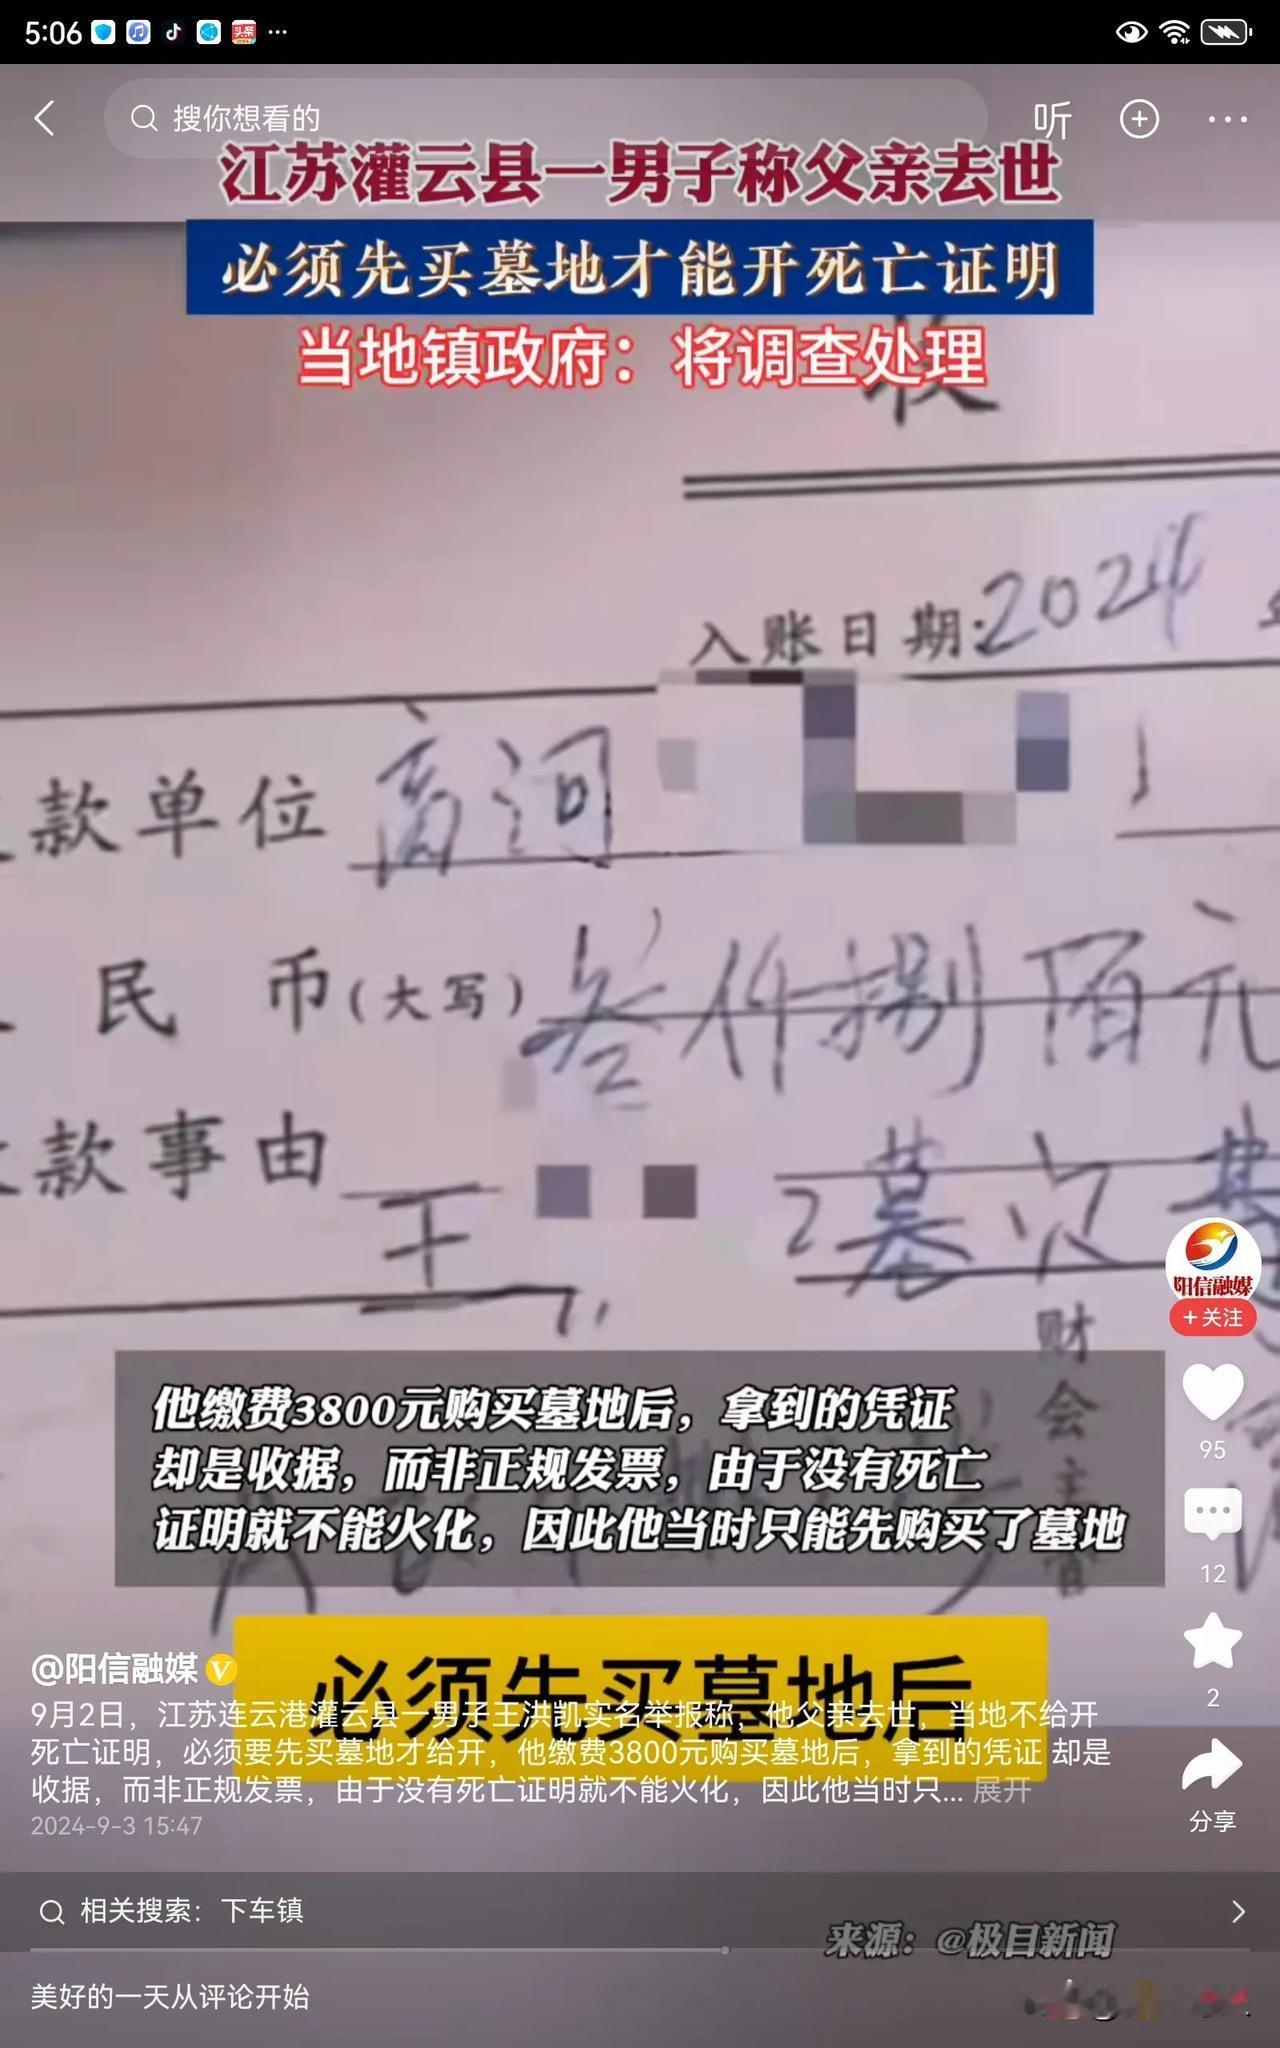 5:06
搜你想看的
听
江苏灌云县一男子称父亲去世
必须先买墓地才能开死亡证明
当地镇政府：将调查处理
收
入账日期:2024
款单位
民 币(大写) 叁仟捌陌元
款事由 王 墓
财会主管
阳信融媒
+关注
他缴费3800元购买墓地后，拿到的凭证
却是收据，而非正规发票，由于没有死亡
证明就不能火化，因此他当时只能先购买了墓地
95
12
2
分享
必须先买墓地后
@阳信融媒
9月2日，江苏连云港灌云县一男子王洪凯实名举报称，他父亲去世，当地不给开
死亡证明，必须要先买墓地才给开，他缴费3800元购买墓地后，拿到的凭证 却是
收据，而非正规发票，由于没有死亡证明就不能火化，因此他当时只... 展开
2024-9-3 15:47
相关搜索：下车镇
来源：@极目新闻
美好的一天从评论开始